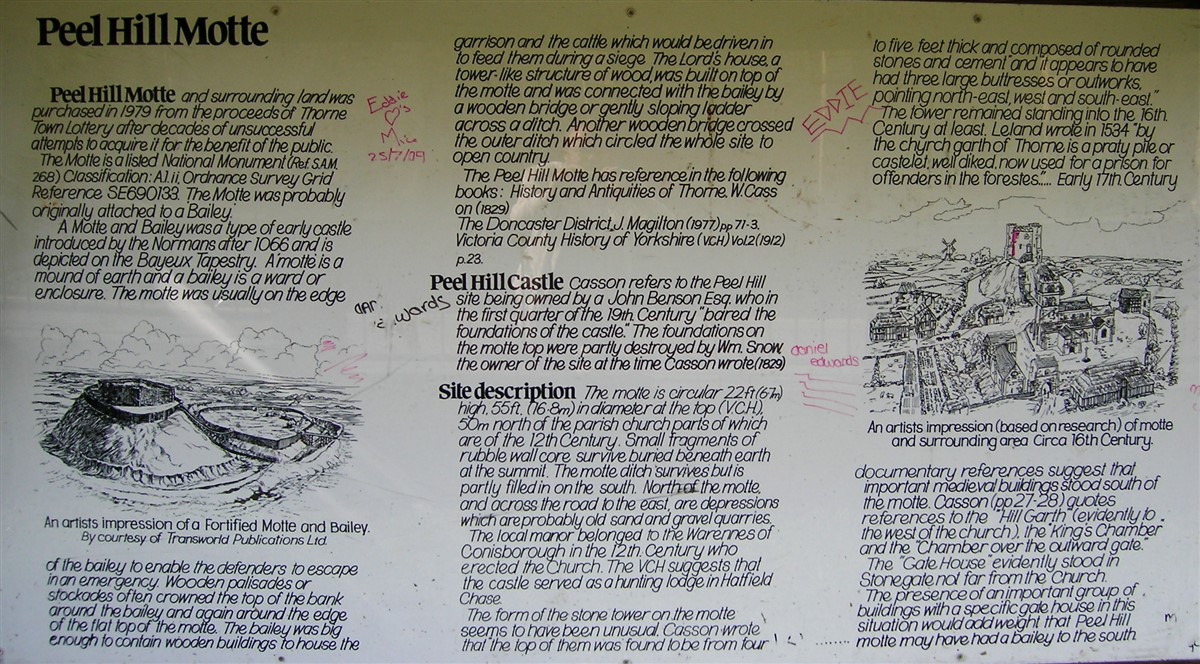 Peel Hill Motte
Peel Hill Motte and surrounding land was
purchased in 1979 from the proceeds of Thorne
Town Lottery after decades of unsuccessful
attempts to acquire it for the benefit of the public.
The Motte is a listed National Monument (Ref. S.A.M.
268) Classification: A.1.ii, Ordnance Survey Grid
Reference SE690133. The Motte was probably
originally attached to a Bailey.
A Motte and Bailey was a type of early castle
introduced by the Normans after 1066 and is
depicted on the Bayeux Tapestry. A motte is a
mound of earth and a bailey is a ward or
enclosure. The motte was usually on the edge
An artists impression of a Fortified Motte and Bailey.
By courtesy of Transworld Publications Ltd.
of the bailey to enable the defenders to escape
in an emergency. Wooden palisades or
stockades often crowned the top of the bank
around the bailey and again around the edge
of the flat top of the motte. The bailey was big
enough to contain wooden buildings to house the
Eddie
Mic
wards
garrison and the cattle which would be driven in
to feed them during a siege. The Lord's house, a
tower-like structure of wood, was built on top of
the motte and was connected with the bailey by
a wooden bridge or gently sloping ladder
across a ditch. Another wooden bridge crossed
the outer ditch which circled the whole site to
open country.
The Peel Hill Motte has reference in the following
books: History and Antiquities of Thorne. W. Cass
on (1829)
The Doncaster District, J. Magilton (1977) pp 71-3.
Victoria County History of Yorkshire (VCH) Vol.2 (1912)
p.23.
Peel Hill Castle Casson refers to the Peel Hill
site being owned by a John Benson Esq. who in
the first quarter of the 19th. Century "bared the
foundations of the castle." The foundations on
the motte top were partly destroyed by Wm. Snow,
the owner of the site at the time Casson wrote (1829)
Site description The motte is circular 22ft (6·7m)
high, 55ft. (16·8m) in diameter at the top (VCH),
50m north of the parish church parts of which
are of the 12th Century. Small fragments of
rubble wall core survive buried beneath earth
at the summit. The motte ditch survives but is
partly filled in on the south. North of the motte,
and across the road to the east, are depressions
which are probably old sand and gravel quarries.
The local manor belonged to the Warennes of
Conisborough in the 12th. Century who
erected the Church. The VCH suggests that
the castle served as a hunting lodge in Hatfield
Chase.
The form of the stone tower on the motte
seems to have been unusual. Casson wrote
that the top of them was found to be from four
EDDIE
daniel
edwards
to five feet thick and composed of rounded
stones and cement and it appears to have
had three large buttresses or outworks,
pointing north-east, west and south-east."
The tower remained standing into the 16th.
Century at least. Leland wrote in 1534 "by
the church garth of Thorne is a praty pile or
castelet, well diked, now used for a prison for
offenders in the forestes.".... Early 17th. Century
An artists impression (based on research) of motte
and surrounding area Circa 16th Century.
documentary references suggest that
important medieval buildings stood south of
the motte. Casson (pp 27-28) quotes
references to the "Hill Garth" (evidently to
the west of the church), the "King's Chamber
and the "Chamber over the outward gate."
The "Gate House" evidently stood in
Stonegate not far from the Church.
The presence of an important group of
buildings with a specific gate house in this
situation would add weight that Peel Hill
motte may have had a bailey to the south.